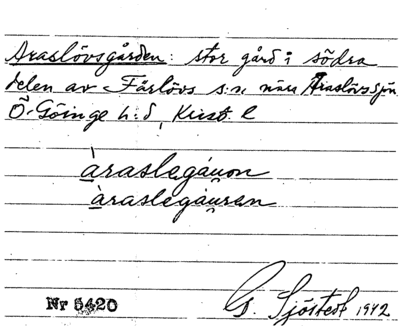 Araslövsgården: stor gård i södra
delen av Färlövs s:n nära Araslövssjön
Ö. Göinge h:d, Krist. l
àraslegáuon
àraslegáuren
Nr 5420
G. Sjöstedt 1942